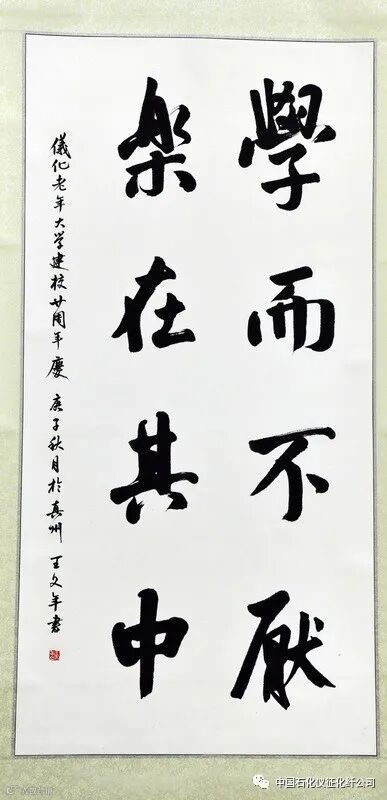 學而不厭
樂在其中
儀化老年大学建校廿周年慶 庚子秋月於真州 王文年書
中国石化仪征化纤公司